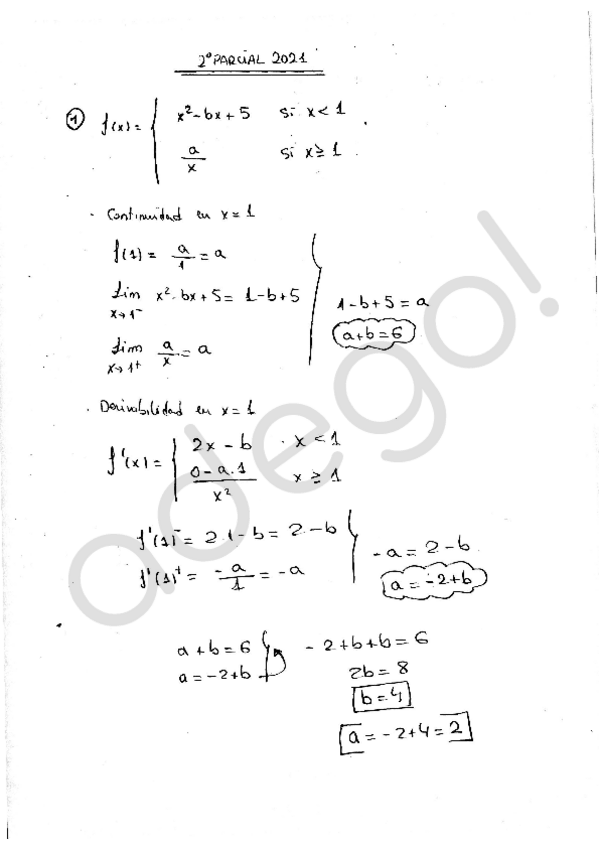 2º PARCIAL 2021
① f(x) = { x² - bx + 5 si x < 1
a/x si x ≥ 1
· Continuidad en x = 1
f(1) = a/1 = a
Lim x→1⁻ x² - bx + 5 = 1 - b + 5
1 - b + 5 = a
a + b = 6
Lim x→1⁺ a/x = a
· Derivabilidad en x = 1
f'(x) = { 2x - b · x < 1
(0 - a·1)/x² x ≥ 1
f'(1)⁻ = 2·1 - b = 2 - b
f'(1)⁺ = -a/1 = -a
-a = 2 - b
a = -2 + b
a + b = 6
a = -2 + b
-2 + b + b = 6
2b = 8
b = 4
a = -2 + 4 = 2
adego!